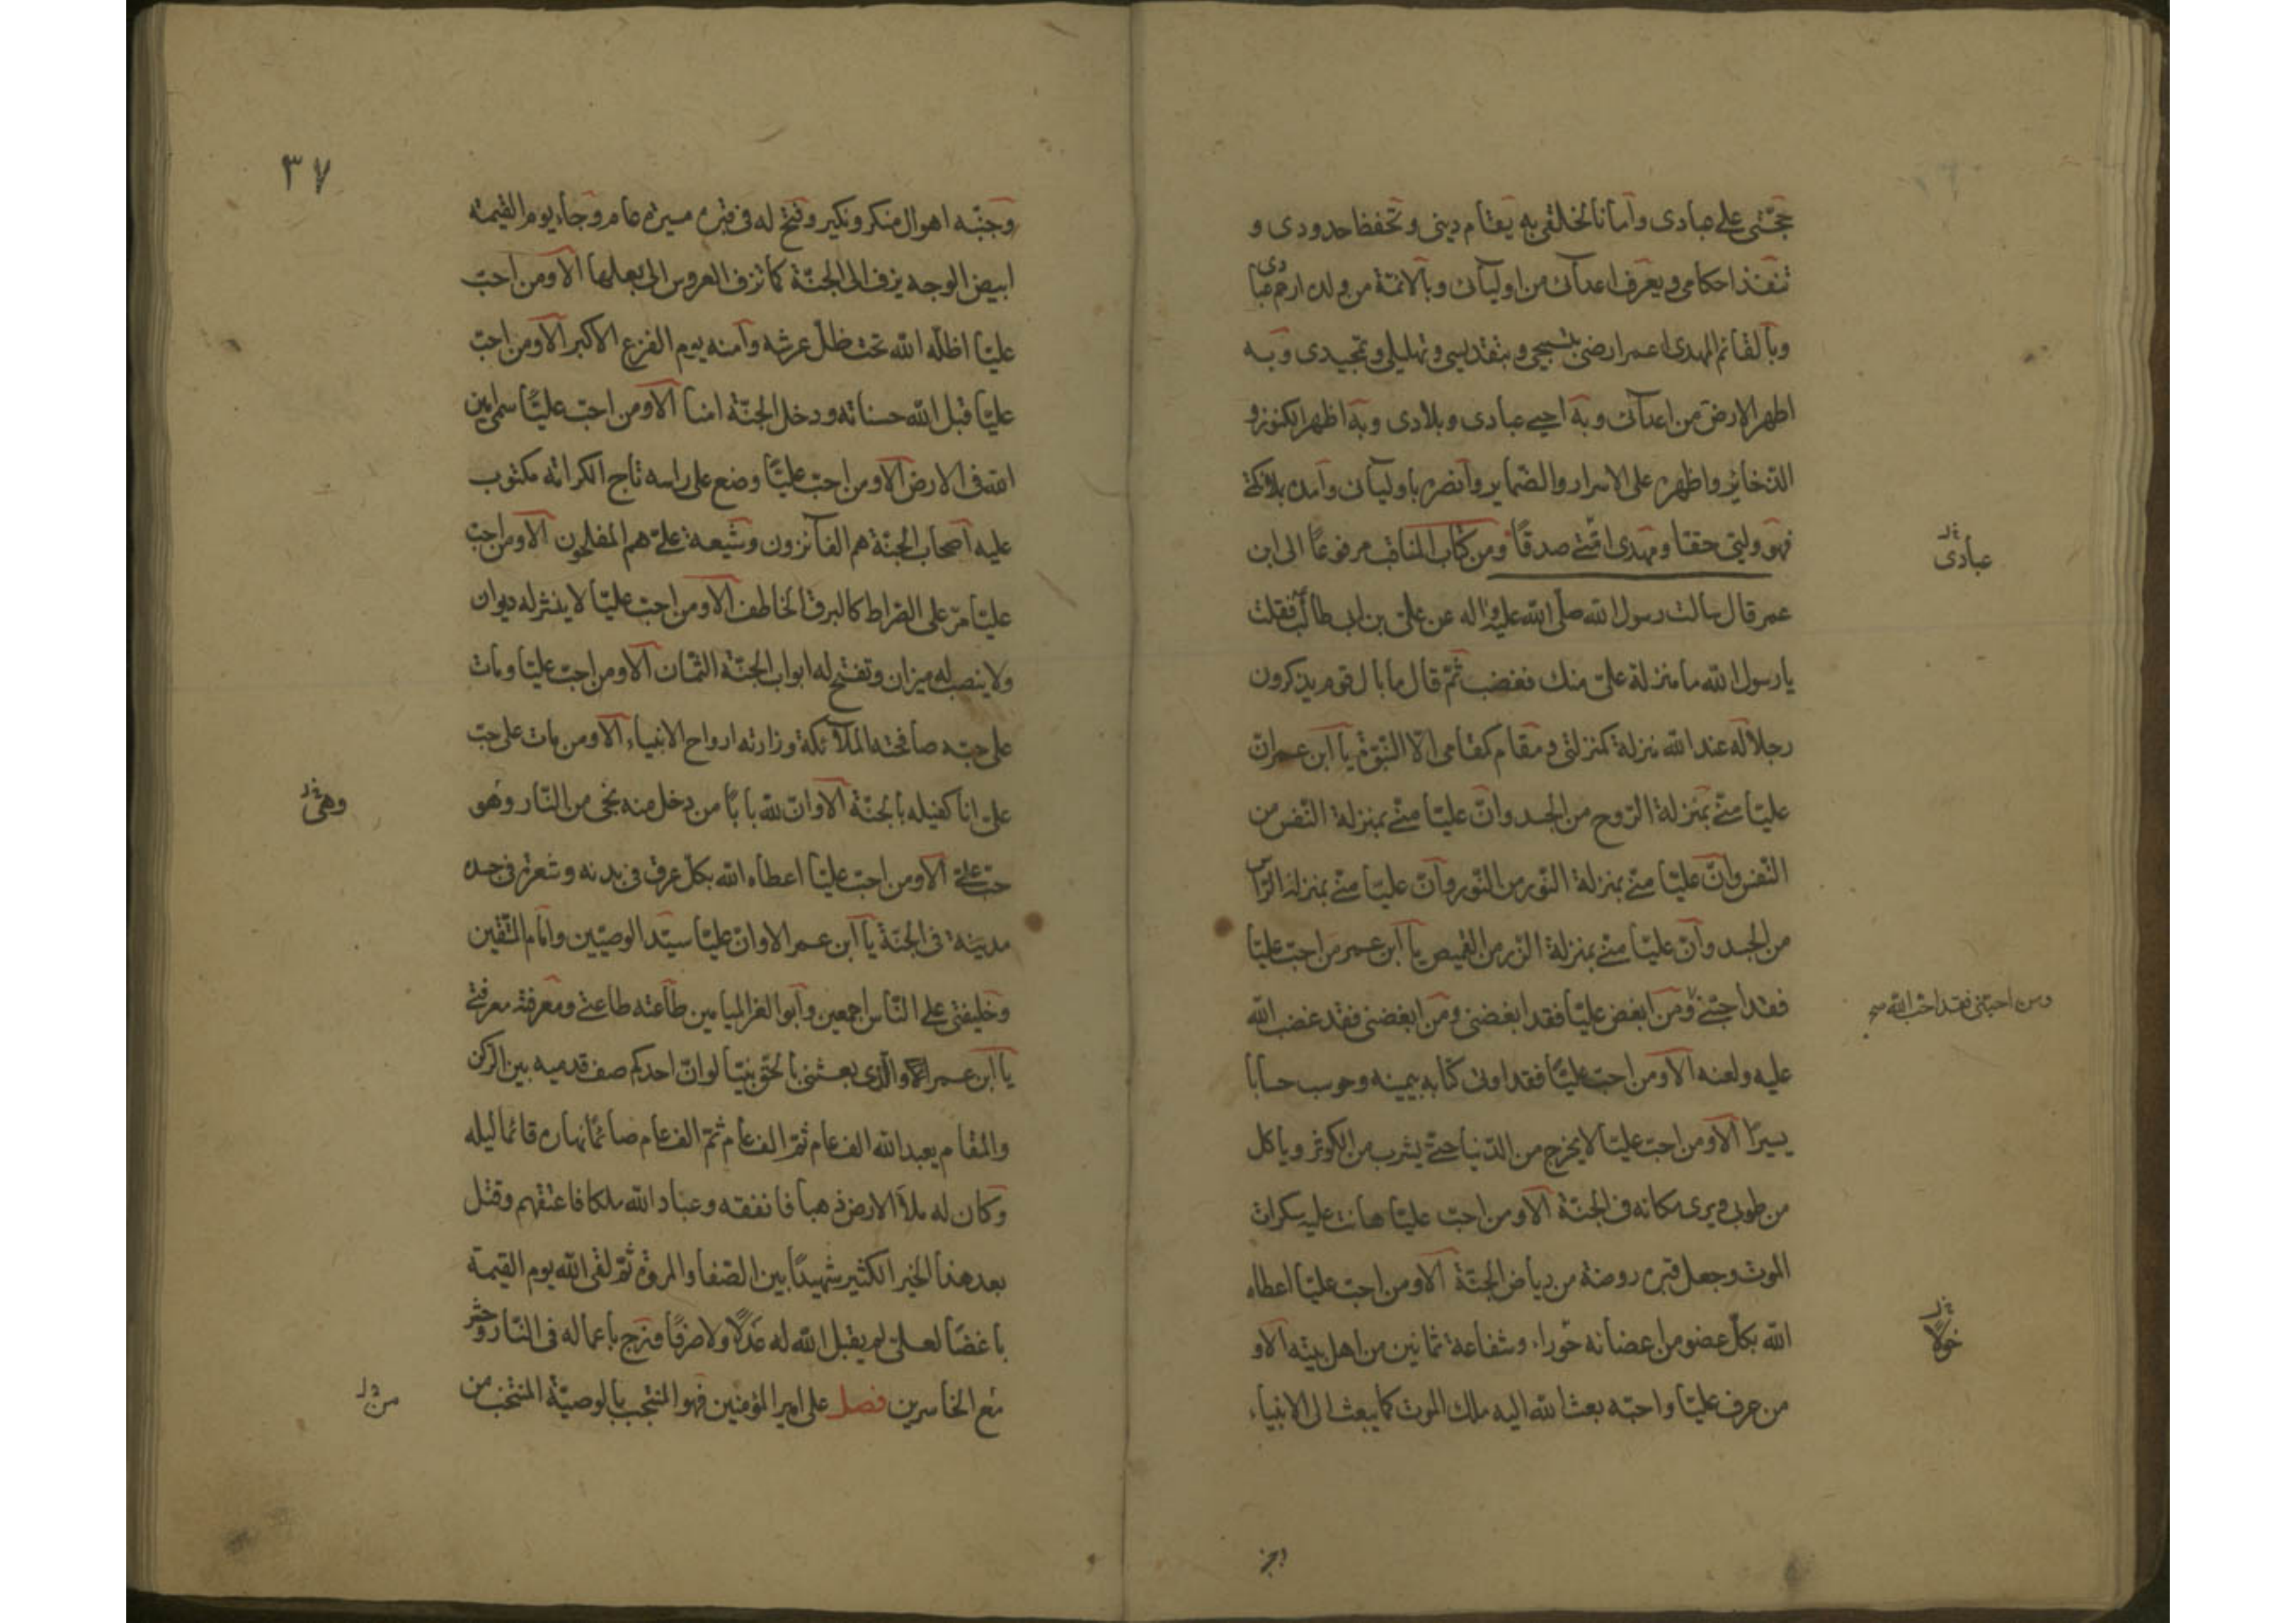 حجّتى على عبادى وامانا لخلقى به يقام دينى وتحفظ حدودى و
تنفذ احكامى ويعرف اعدآئى من اوليآئى وبالائمّة من ولده ارحم عبادى
وبالقائم المهدى اعمر ارضى بتسبيحى وبتقديسى وتهليلى وتمجيدى وبه
اطهر الارض من اعدآئى وبه احيى عبادى وبلادى وبه اظهر الكنوز و
الذخاير واظهره على الاسرار والضماير وانصره باوليآئى وامده بملائكتى
فهو وليّى حقا ومهدى امّتى صدقًا ومن كتاب المناقب مرفوعًا الى ابن
عبادى
عمر قال سالت رسول الله صلّى الله عليه واله عن علىّ بن ابى طالب فقلت
يا رسول الله ما منزلة علىّ منك فغضب ثمّ قال ما بال قوم يذكرون
رجلا له عند الله منزلة كمنزلتى ومقام كمقامى الّا النّبوّة يا ابن عمر ان
عليّا منّى بمنزلة الرّوح من الجسد وانّ عليّا منّى بمنزلة النّفس من
النّفس وانّ عليّا منّى بمنزلة النّور من النّور وانّ عليّا منّى بمنزلة الرّاس
من الجسد وانّ عليّا منّى بمنزلة الزّر من القميص يا ابن عمر من احبّ عليّا
فقد احبّنى ومن ابغض عليّا فقد ابغضنى ومن ابغضنى فقد غضب الله
ومن احبّنى فقد احبّ الله صح
عليه ولعنه الا ومن احبّ عليّا فقد اوتى كتابه بيمينه وحوسب حسابا
يسيرًا الا ومن احبّ عليّا لا يخرج من الدّنيا حتّى يشرب من الكوثر وياكل
من طوبى ويرى مكانه فى الجنّة الا ومن احبّ عليّا هانت عليه سكرات
الموت وجعل قبره روضة من رياض الجنّة الا ومن احبّ عليّا اعطاه
الله بكلّ عضو من اعضائه حورا، وشفاعة ثمانين من اهل بيته الا و
من عرف عليّا واحبّه بعث الله اليه ملك الموت كما يبعث الى الانبياء
٣٧
وجنّبه اهوال منكر ونكير وفتح له فى قبره مسيرة عام وجاء يوم القيمة
ابيض الوجه يزف الى الجنّة كما تزف العروس الى بعلها الا ومن احبّ
عليّا اظلّه الله تحت ظلّ عرشه وآمنه يوم الفزع الاكبر الا ومن احبّ
عليّا قبل الله حسناته ودخل الجنّة امنا الا ومن احبّ عليّا سمى امين
الله فى الارض الا ومن احبّ عليّا وضع على راسه تاج الكرامة مكتوب
عليه اصحاب الجنّة هم الفآئزون وشيعة علىّ هم المفلحون الا ومن احبّ
عليّا مرّ على الصّراط كالبرق الخاطف الا ومن احبّ عليّا لا ينشر له ديوان
ولا ينصب له ميزان وتفتح له ابواب الجنّة الثّمان الا ومن احبّ عليّا ومات
على حبّه صافحته الملآئكة وزارته ارواح الانبياء الا ومن مات على حبّ
علىّ انا كفيله بالجنّة الا وانّ لله بابًا من دخل منه نجى من النّار وهو
وهى
حبّ علىّ الا ومن احبّ عليّا اعطاه الله بكلّ عرق فى بدنه وشعرة فى جسده
مدينة فى الجنّة يا ابن عمر الا وانّ عليّا سيّد الوصيّين وامام المتّقين
وخليفتى على النّاس اجمعين وابو الغر الميامين طاعته طاعتى ومعرفته معرفتى
يا ابن عمر والّذى بعثنى بالحقّ نبيّا لو انّ احدكم صف قدميه بين الرّكن
والمقام يعبد الله الف عام ثمّ الف عام ثمّ الف عام صائمًا نهاره قائما ليله
وكان له ملأ الارض ذهبا فانفقه وعباد الله ملكا فاعتقهم وقتل
بعد هذا الخير الكثير شهيدًا بين الصّفا والمروة ثمّ لقى الله يوم القيمة
باغضًا لعلىّ لم يقبل الله له عدلًا ولا صرفًا وزج باعماله فى النّار وحشر
مع الخاسرين فصل على امير المؤمنين فهو المنتجب بالوصيّة المنتخب من